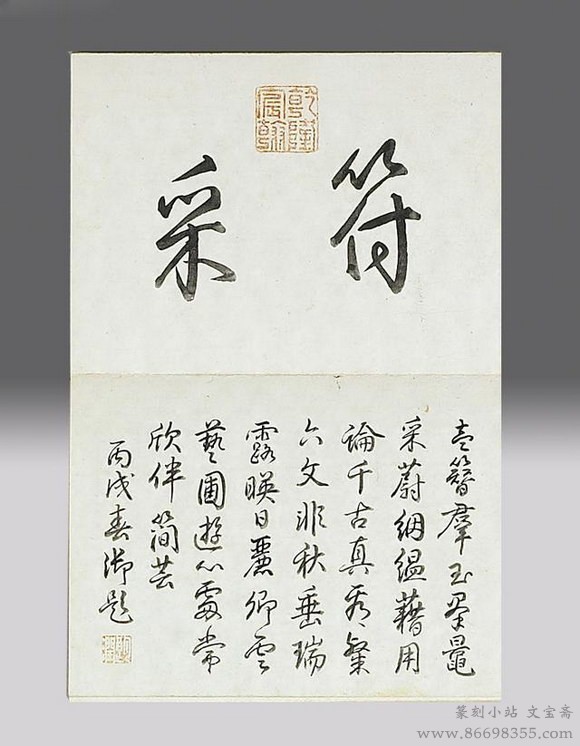 乾隆宸翰
符采
盍簪羣玉鼂
采蔚絪縕藉用
論千古真看粲
六文非秋垂瑞
露暎日麗卿雲
藝圃遊心處常
欣伴簡芸
丙戌春御題
篆刻小站 文宝斋
www.86698355.com